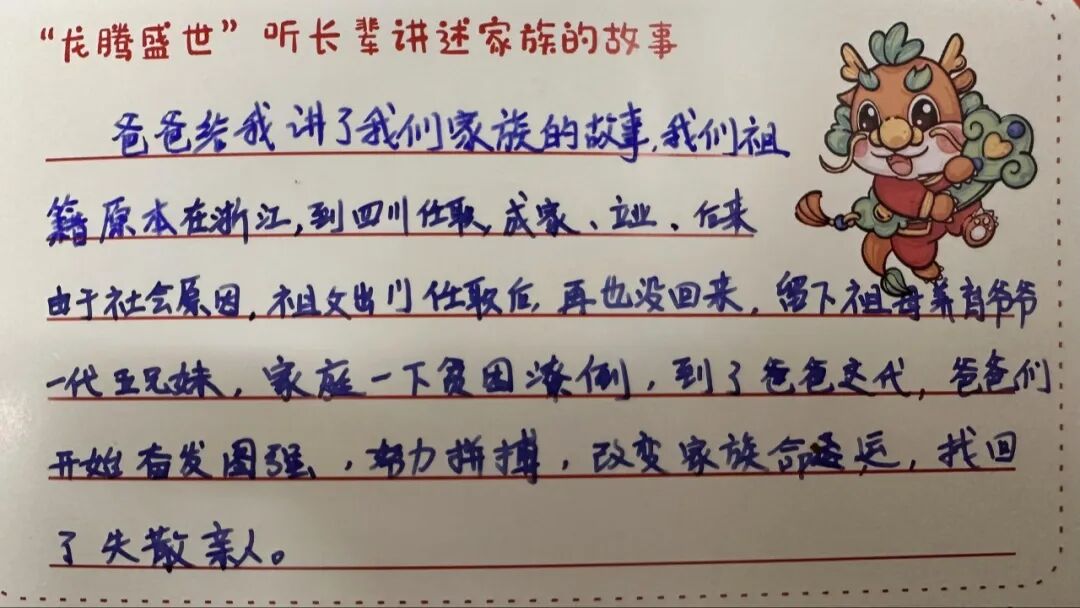 “龙腾盛世”听长辈讲述家族的故事
爸爸给我讲了我们家族的故事,我们祖
籍原本在浙江,到四川任职,成家、立业、后来
由于社会原因,祖父出川任职后,再也没回来,留下祖母养育爷爷
一代五兄妹,家庭一下贫困潦倒,到了爸爸这代,爸爸们
开始奋发图强,努力拼搏,改变家族命运,找回
了失散亲人。